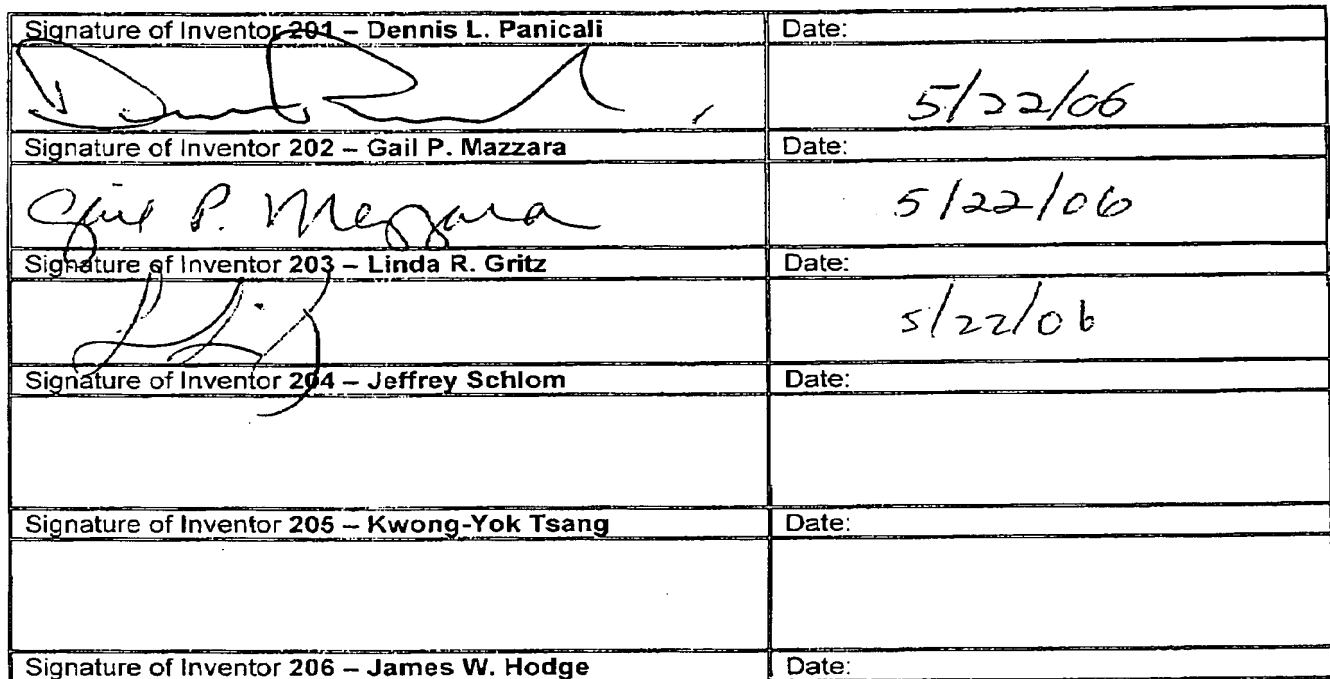 Signature of Inventor 201 – Dennis L. Panicali Date:
5/22/06
Signature of Inventor 202 – Gail P. Mazzara Date:
Gail P. Mazzara 5/22/06
Signature of Inventor 203 – Linda R. Gritz Date:
5/22/06
Signature of Inventor 204 – Jeffrey Schlom Date:
Signature of Inventor 205 – Kwong-Yok Tsang Date:
Signature of Inventor 206 – James W. Hodge Date: